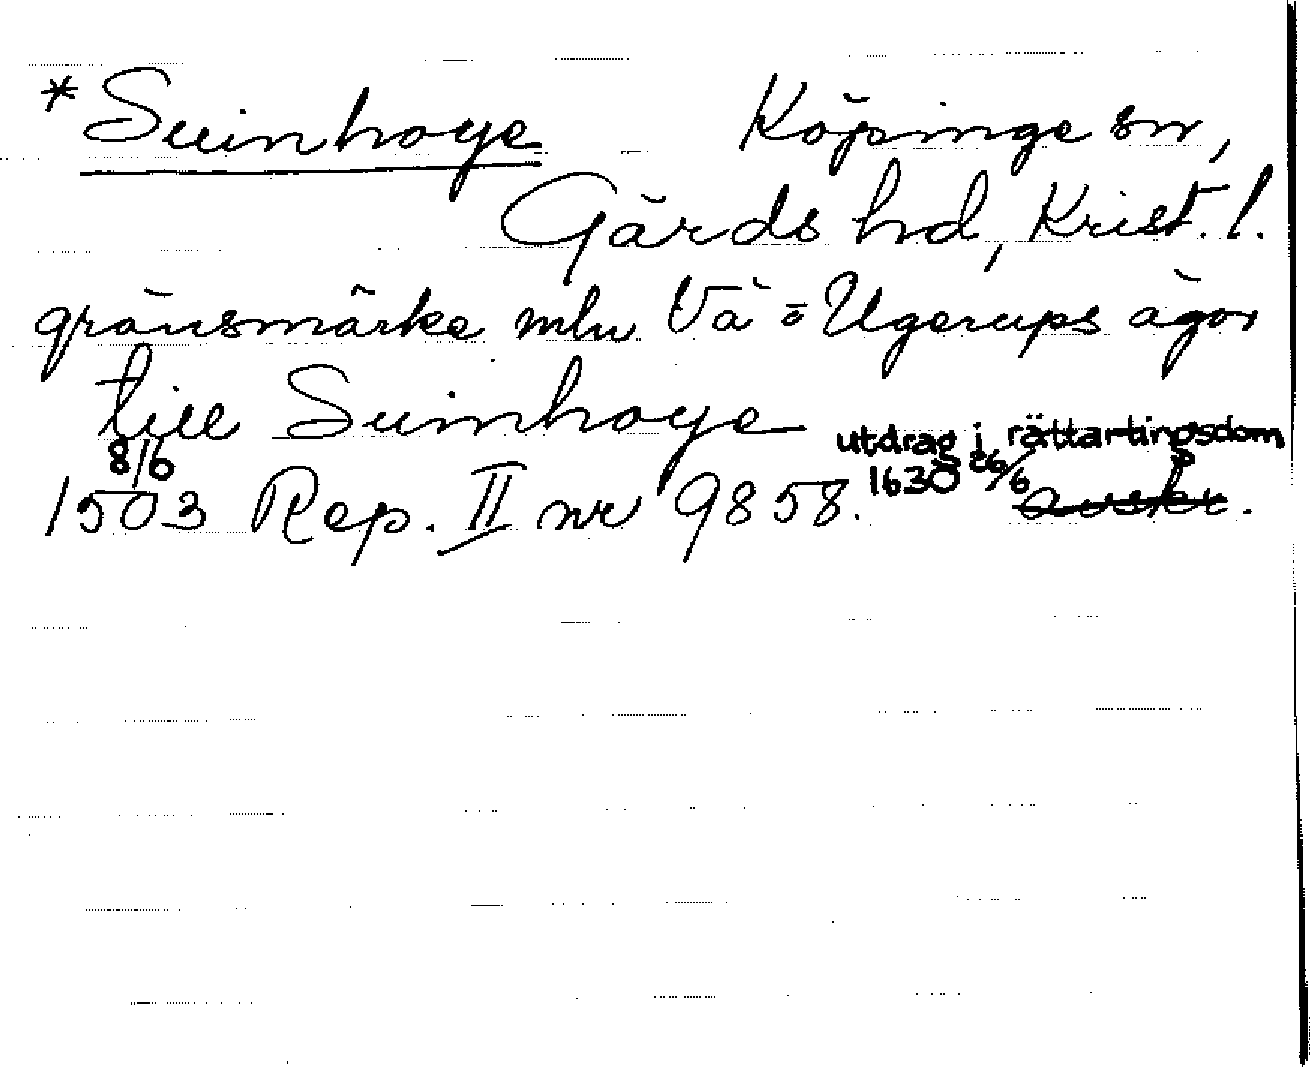 *Suinhoye Köpinge sn,
Gärds hd, Krist. l.
gränsmärke mln Vä = Ugerups ägor
till Suinhoye
8/6
1503 Rep. II nr 9858. utdrag i rättartingsdom
1630 26/6 p avskr.